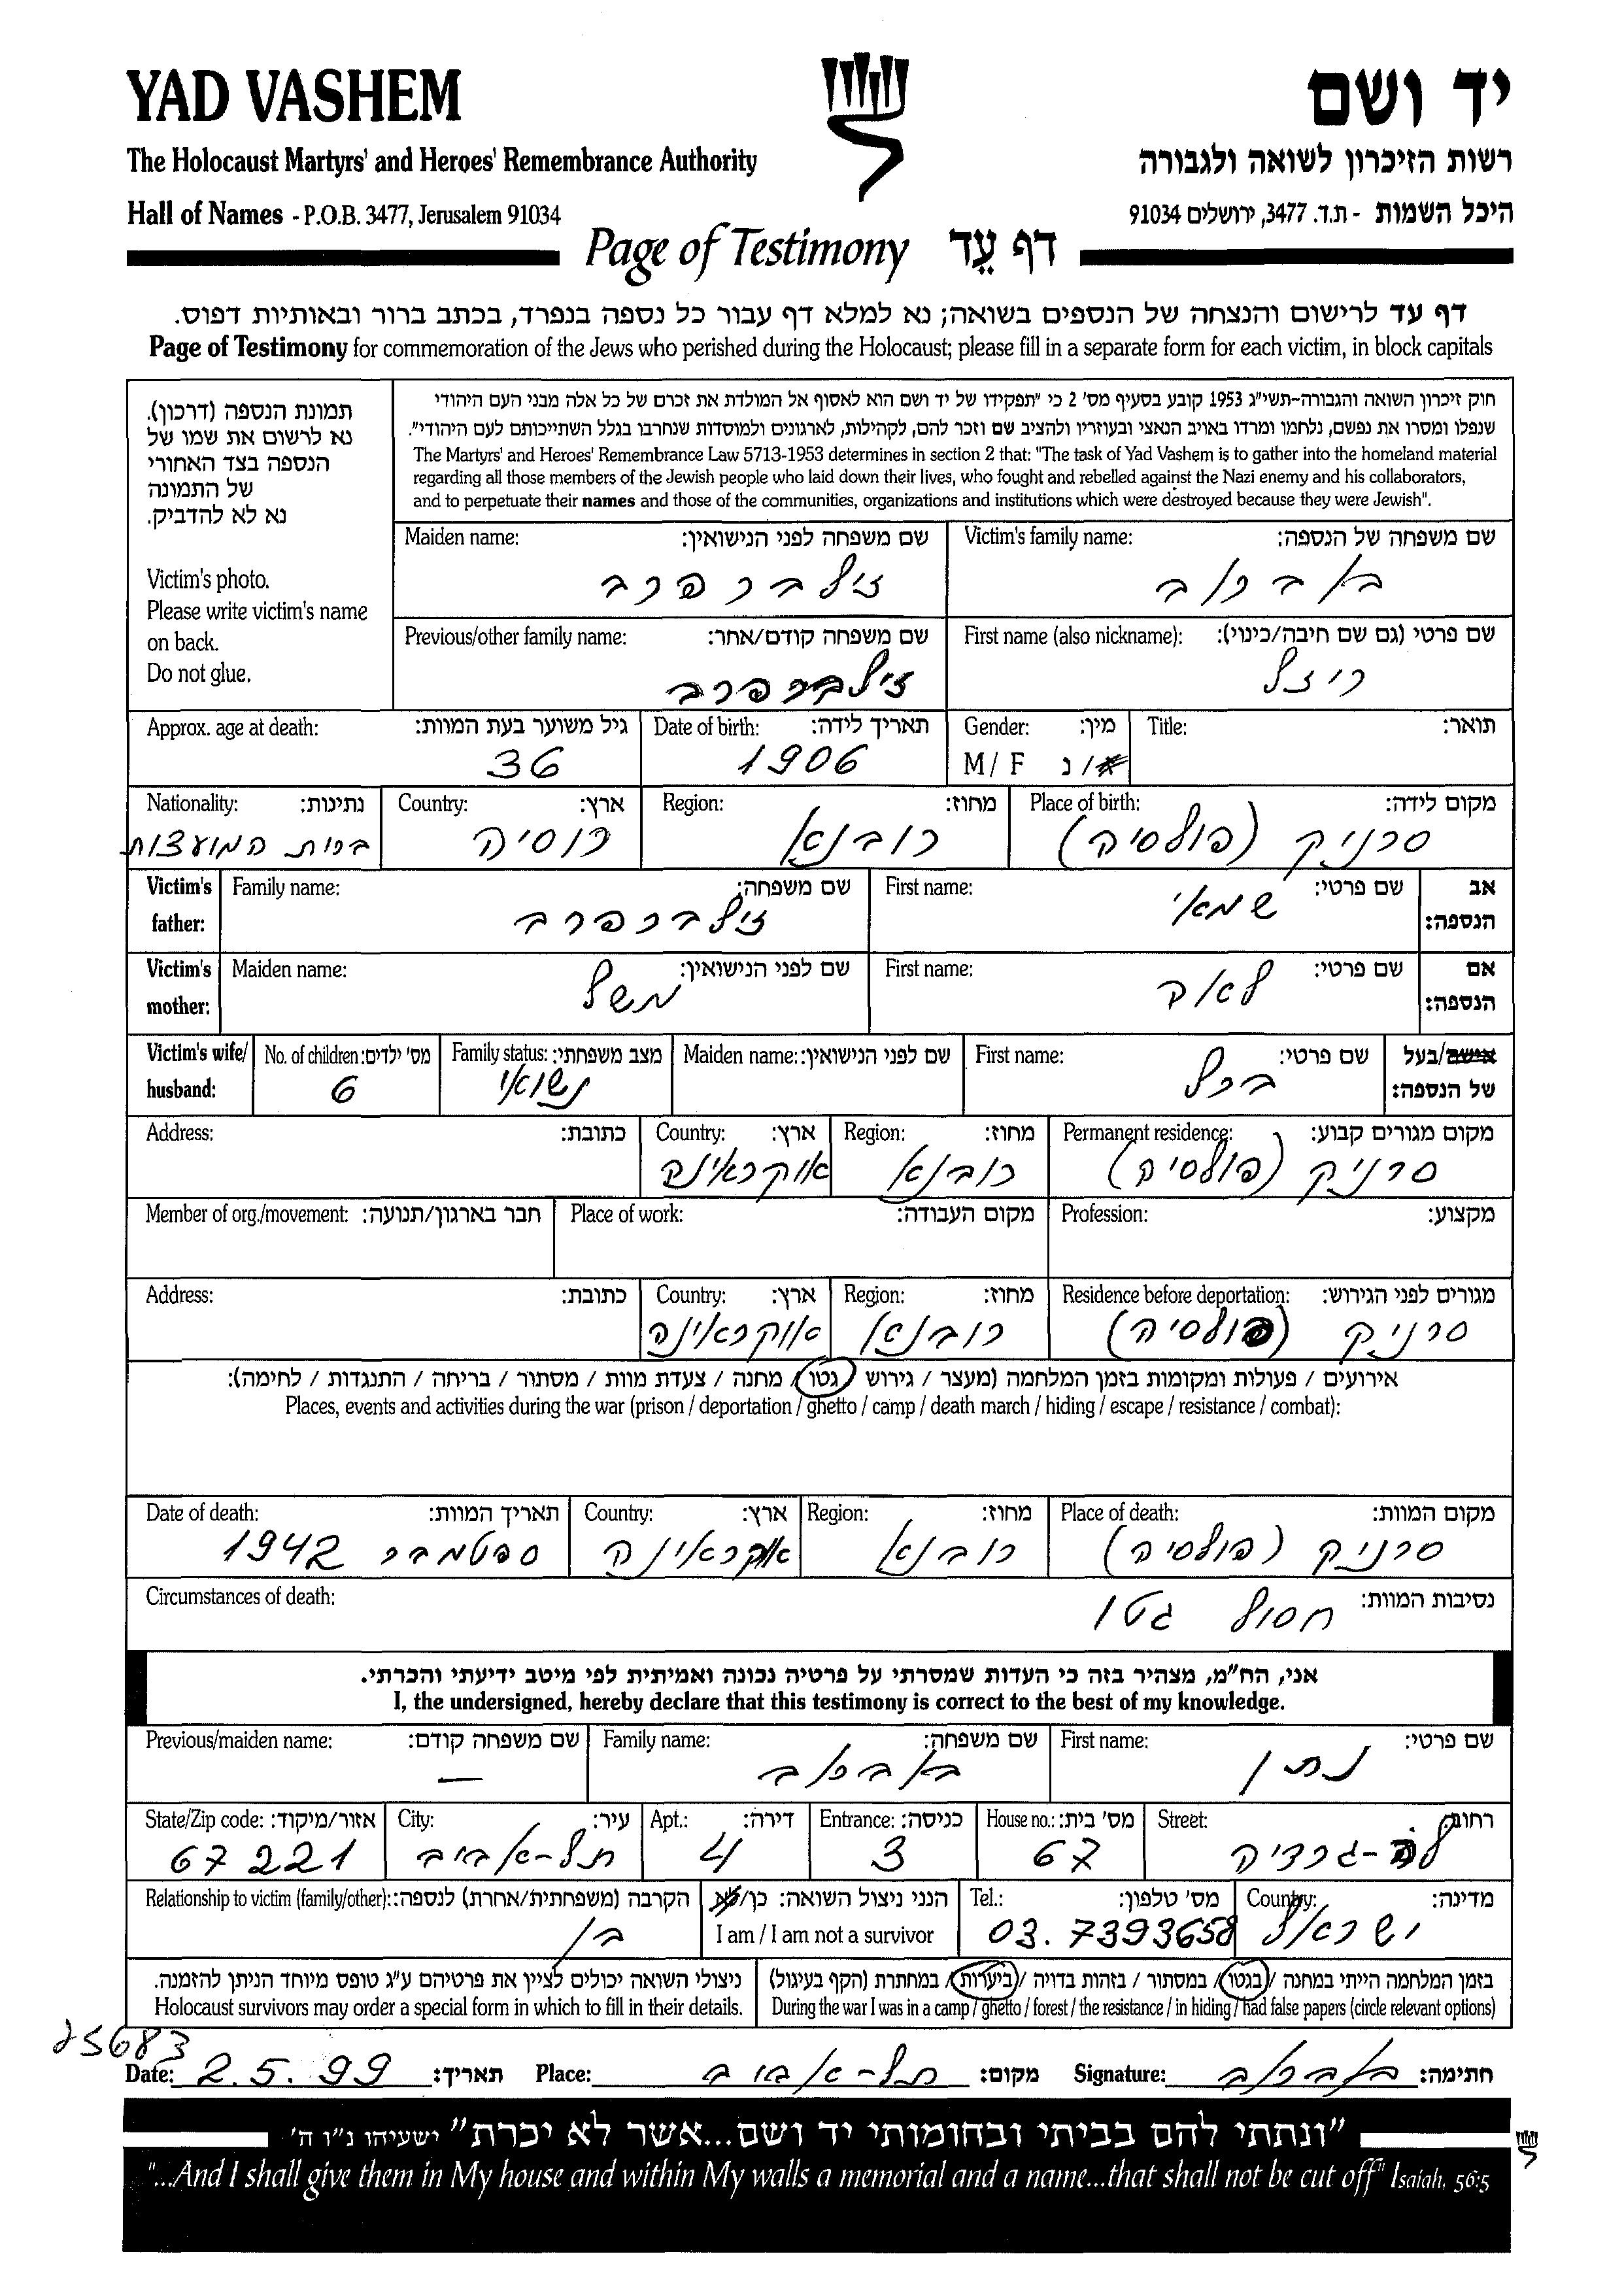 YAD VASHEM
יד ושם
The Holocaust Martyrs' and Heroes' Remembrance Authority
רשות הזיכרון לשואה ולגבורה
Hall of Names - P.O.B. 3477, Jerusalem 91034
היכל השמות - ת.ד. 3477, ירושלים 91034
Page of Testimony דף עֵד
דף עד לרישום והנצחה של הנספים בשואה; נא למלא דף עבור כל נספה בנפרד, בכתב ברור ובאותיות דפוס.
Page of Testimony for commemoration of the Jews who perished during the Holocaust; please fill in a separate form for each victim, in block capitals
תמונת הנספה (דרכון).
נא לרשום את שמו של
הנספה בצד האחורי
של התמונה
נא לא להדביק.
Victim's photo.
Please write victim's name
on back.
Do not glue.
חוק זיכרון השואה והגבורה-תשי"ג 1953 קובע בסעיף מס' 2 כי "תפקידו של יד ושם הוא לאסוף אל המולדת את זכרם של כל אלה מבני העם היהודי
שנפלו ומסרו את נפשם, נלחמו ומרדו באויב הנאצי ובעוזריו ולהציב שם וזכר להם, לקהילות, לארגונים ולמוסדות שנחרבו בגלל השתייכותם לעם היהודי".
The Martyrs' and Heroes' Remembrance Law 5713-1953 determines in section 2 that: "The task of Yad Vashem is to gather into the homeland material
regarding all those members of the Jewish people who laid down their lives, who fought and rebelled against the Nazi enemy and his collaborators,
and to perpetuate their names and those of the communities, organizations and institutions which were destroyed because they were Jewish".
Victim's family name: שם משפחה של הנספה:
באבטב
Maiden name: שם משפחה לפני הנישואין:
זילברפרב
First name (also nickname): שם פרטי (גם שם חיבה/כינוי):
ריזל
Previous/other family name: שם משפחה קודם/אחר:
זילברפרב
Title: תואר:
Gender: מין:
M / F ז/נ
Date of birth: תאריך לידה:
1906
Approx. age at death: גיל משוער בעת המוות:
36
Place of birth: מקום לידה:
סרניק (פולסיה)
Region: מחוז:
רובנא
Country: ארץ:
רוסיה
Nationality: נתינות:
ברית המועצות
Victim's father: אב הנספה:
First name: שם פרטי:
שמאי
Family name: שם משפחה:
זילברפרב
Victim's mother: אם הנספה:
First name: שם פרטי:
לאה
Maiden name: שם לפני הנישואין:
משל
Victim's wife/ husband: אישה/בעל של הנספה:
First name: שם פרטי:
ברל
Maiden name: שם לפני הנישואין:
Family status: מצב משפחתי:
נשואי
No. of children: מס' ילדים:
6
Permanent residence: מקום מגורים קבוע:
סרניק (פולסיה)
Region: מחוז:
רובנא
Country: ארץ:
אוקראינה
Address: כתובת:
Profession: מקצוע:
Place of work: מקום העבודה:
Member of org./movement: חבר בארגון/תנועה:
Residence before deportation: מגורים לפני הגירוש:
סרניק (פולסיה)
Region: מחוז:
רובנא
Country: ארץ:
אוקראינה
Address: כתובת:
אירועים / פעולות ומקומות בזמן המלחמה (מעצר / גירוש / גטו / מחנה / צעדת מוות / מסתור / בריחה / התנגדות / לחימה):
Places, events and activities during the war (prison / deportation / ghetto / camp / death march / hiding / escape / resistance / combat):
Place of death: מקום המוות:
סרניק (פולסיה)
Region: מחוז:
רובנא
Country: ארץ:
אוקראינה
Date of death: תאריך המוות:
ספטמבר 1942
Circumstances of death: נסיבות המוות:
חסול גטו
אני, הח"מ, מצהיר בזה כי העדות שמסרתי על פרטיה נכונה ואמיתית לפי מיטב ידיעתי והכרתי.
I, the undersigned, hereby declare that this testimony is correct to the best of my knowledge.
First name: שם פרטי:
נתן
Family name: שם משפחה:
Previous/maiden name: שם משפחה קודם:
—
Street: רחוב:
לה-גרדיה
House no.: מס' בית:
67
Entrance: כניסה:
3
Apt.: דירה:
4
City: עיר:
תל-אביב
State/Zip code: אזור/מיקוד:
67221
Country: מדינה:
ישראל
Tel.: מס' טלפון:
03.7393658
הנני ניצול השואה: כן/לא
I am / I am not a survivor
Relationship to victim (family/other): הקרבה (משפחתית/אחרת) לנספה:
בן
בזמן המלחמה הייתי במחנה / בגטו / במסתור / בזהות בדויה / ביערות / במחתרת (הקף בעיגול)
During the war I was in a camp / ghetto / forest / the resistance / in hiding / had false papers (circle relevant options)
ניצולי השואה יכולים לציין את פרטיהם ע"ג טופס מיוחד הניתן להזמנה.
Holocaust survivors may order a special form in which to fill in their details.
25683
Date: 2.5.99 תאריך:
Place: תל-אביב מקום:
Signature: חתימה:
"ונתתי להם בביתי ובחומותי יד ושם...אשר לא יכרת" ישעיהו נ"ו ה'
"...And I shall give them in My house and within My walls a memorial and a name...that shall not be cut off" Isaiah, 56:5